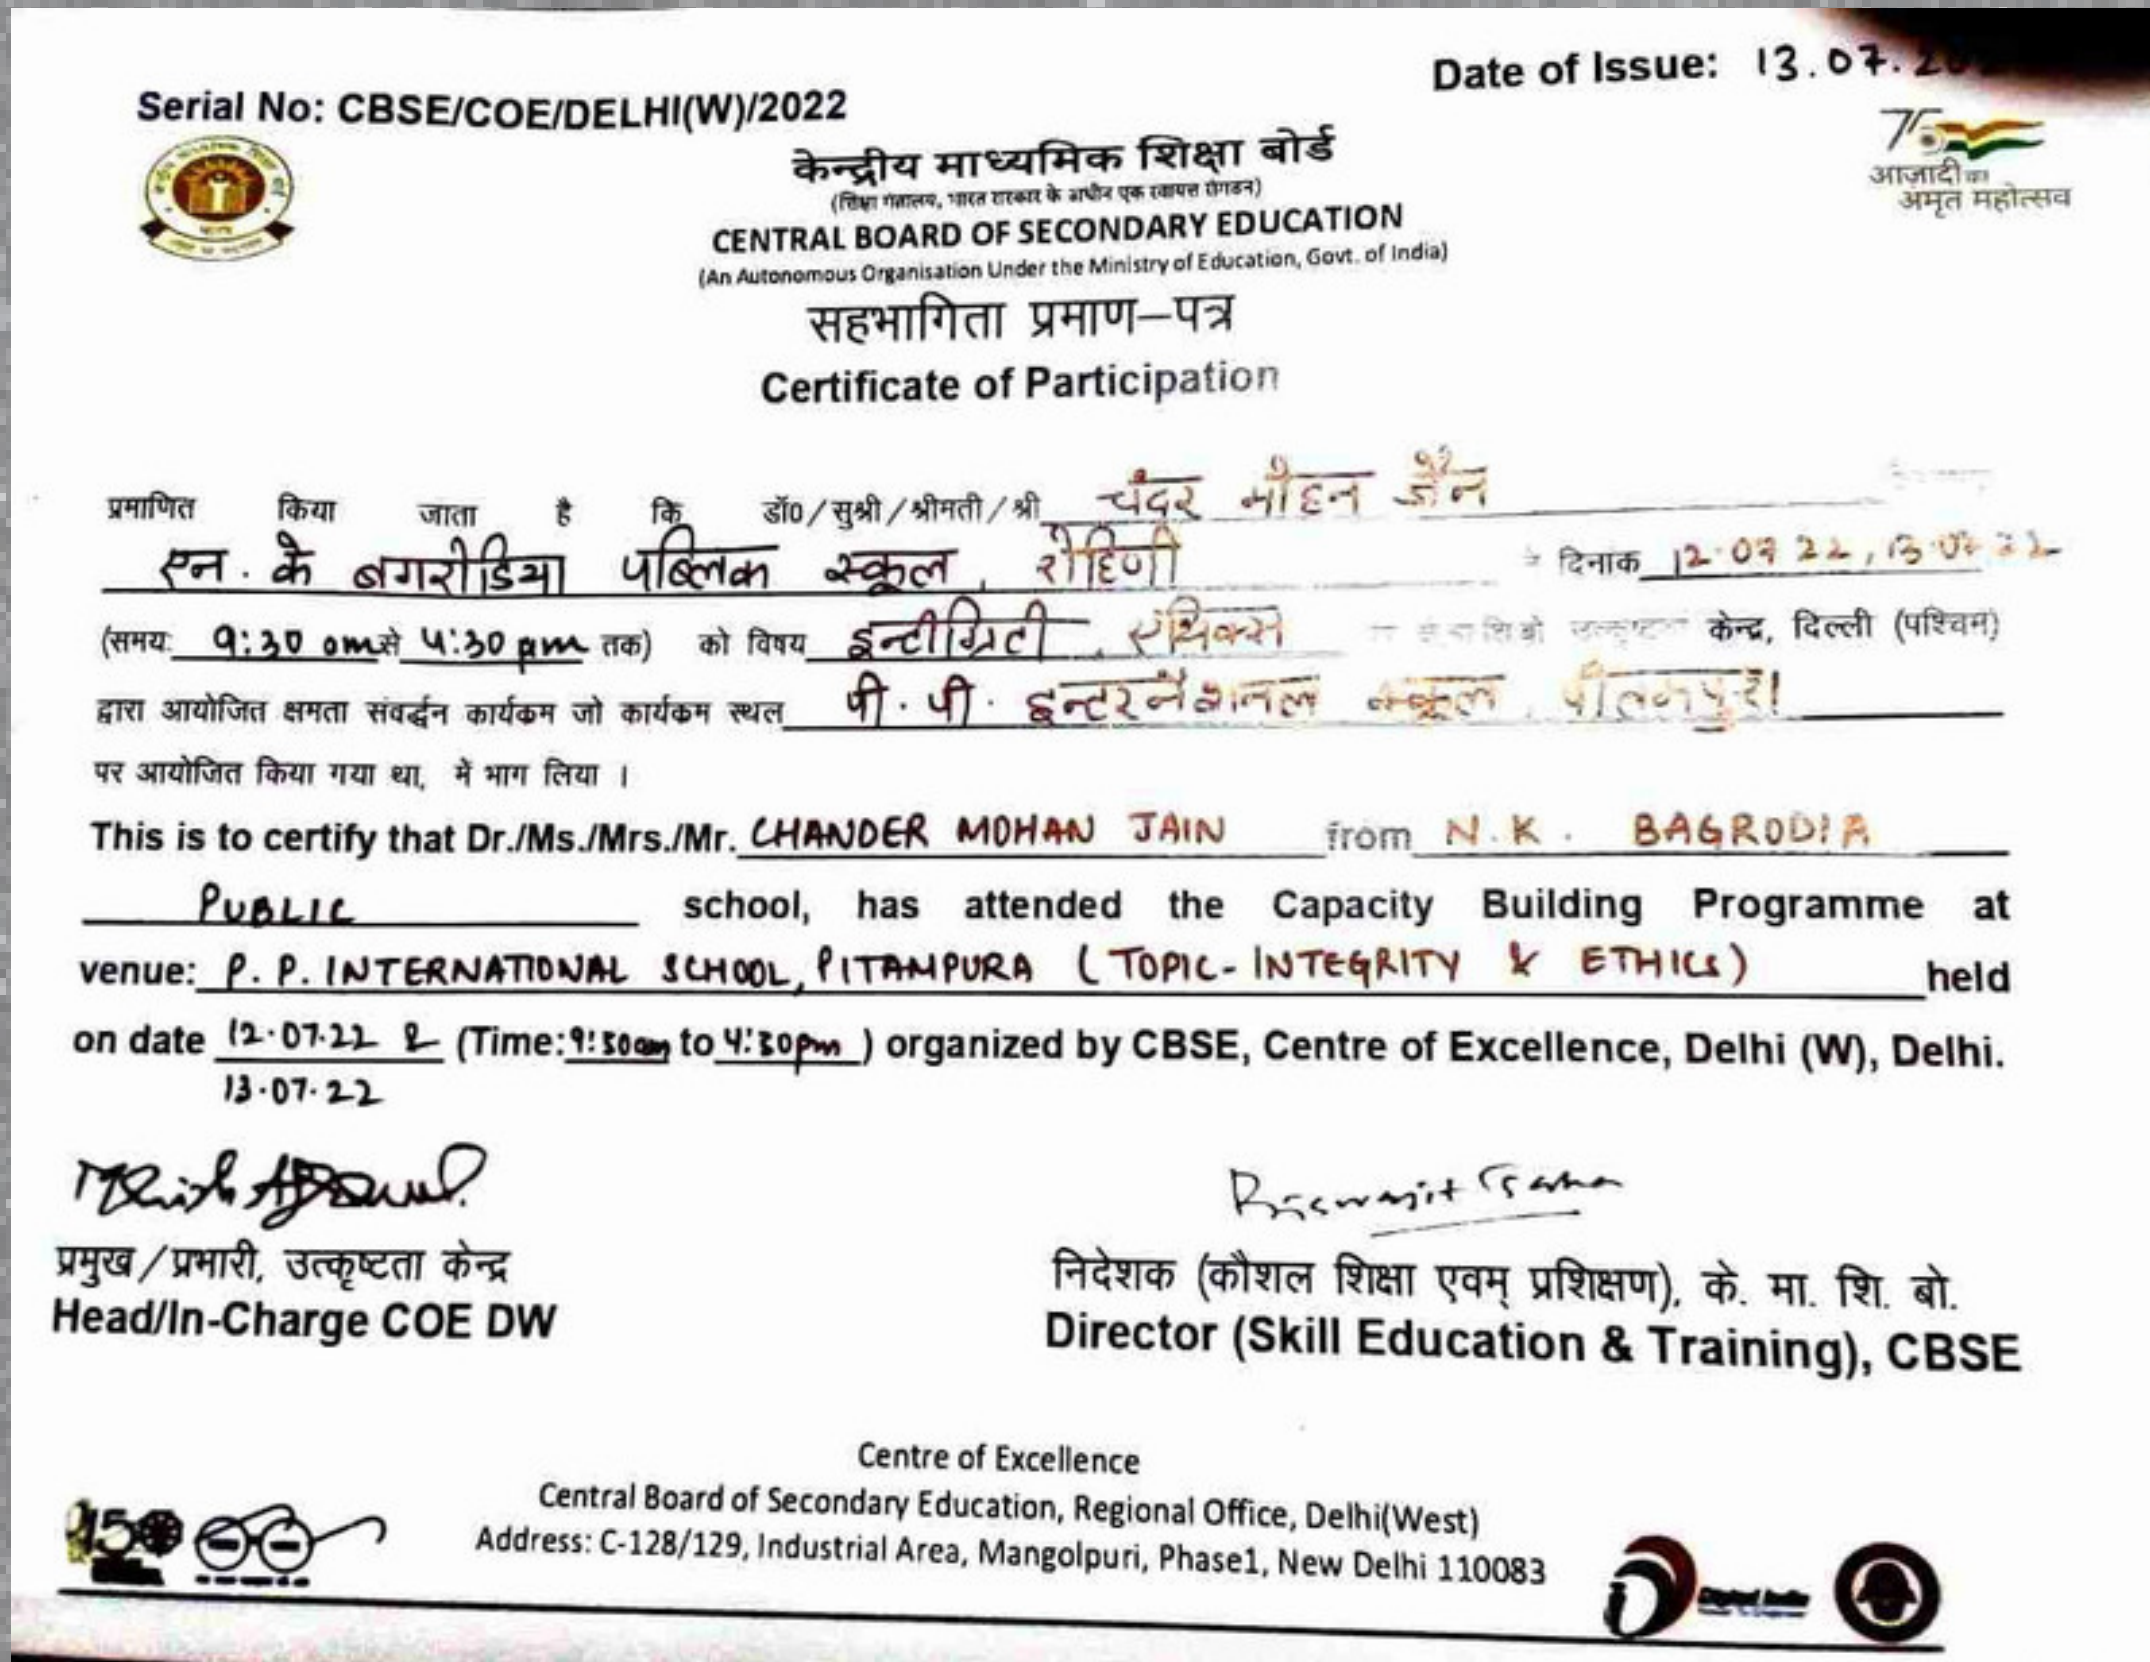 Date of Issue: 13.07.
Serial No: CBSE/COE/DELHI(W)/2022
केन्द्रीय माध्यमिक शिक्षा बोर्ड
(शिक्षा मंत्रालय, भारत सरकार के अधीन एक स्वायत्त संगठन)
CENTRAL BOARD OF SECONDARY EDUCATION
(An Autonomous Organisation Under the Ministry of Education, Govt. of India)
75
आज़ादी का
अमृत महोत्सव
सहभागिता प्रमाण–पत्र
Certificate of Participation
प्रमाणित किया जाता है कि डॉ0/सुश्री/श्रीमती/श्री चंदर मोहन जैन
एन. के बगरोडिया पब्लिक स्कूल, रोहिणी दिनांक 12.07 22, 13.07.22
(समय: 9:30 am से 4:30 pm तक) को विषय इन्टीग्रिटी, एथिक्स केन्द्र, दिल्ली (पश्चिम)
द्वारा आयोजित क्षमता संवर्द्धन कार्यकम जो कार्यकम स्थल पी. पी. इन्टरनैशनल स्कूल,
पर आयोजित किया गया था, में भाग लिया ।
This is to certify that Dr./Ms./Mrs./Mr. CHANDER MOHAN JAIN from N.K. BAGRODIA
PUBLIC school, has attended the Capacity Building Programme at
venue: P. P. INTERNATIONAL SCHOOL, PITAMPURA (TOPIC- INTEGRITY & ETHICS) held
on date 12.07.22 & (Time: 9:30am to 4:30pm) organized by CBSE, Centre of Excellence, Delhi (W), Delhi.
13.07.22
प्रमुख/प्रभारी, उत्कृष्टता केन्द्र
Head/In-Charge COE DW
Biswajit Saha
निदेशक (कौशल शिक्षा एवम् प्रशिक्षण), के. मा. शि. बो.
Director (Skill Education & Training), CBSE
Centre of Excellence
Central Board of Secondary Education, Regional Office, Delhi(West)
Address: C-128/129, Industrial Area, Mangolpuri, Phase1, New Delhi 110083
Digital India